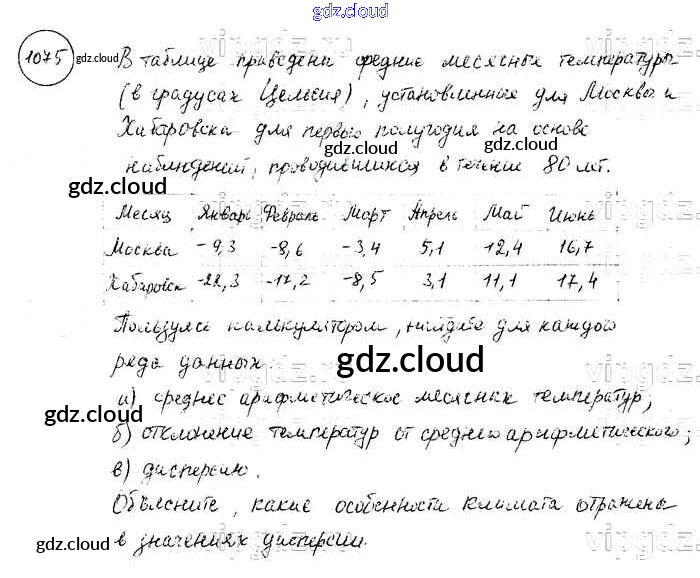 gdz.cloud
1075 gdz.cloud В таблице приведены средние месячные температуры
(в градусах Цельсия), установленные для Москвы и
Хабаровска для первого полугодия на основе
gdz.cloud
наблюдений, проводившихся в течение 80 лет.
gdz.cloud
Месяц Январь Февраль Март Апрель Май Июнь
Москва -9,3 -8,6 -3,4 5,1 12,4 16,7
Хабаровск -22,3 -17,2 -8,5 3,1 11,1 17,4
Пользуясь калькулятором, найдите для каждого
ряда данных:
gdz.cloud
а) среднее арифметическое месячных температур;
gdz.cloud
б) отклонение температур от среднего арифметического;
в) дисперсию.
gdz.cloud
Объясните, какие особенности климата отражены
gdz.cloud
в значениях дисперсии.
gdz.cloud